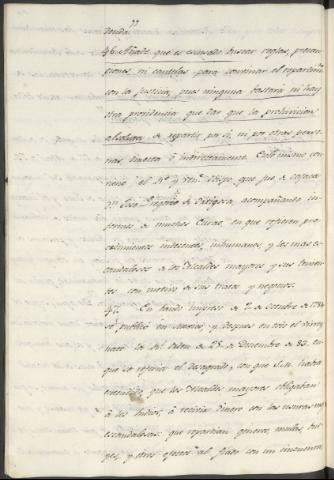 46. Añade que es escusado buscar reglas, precau-
ciones, ni cautelas para continuar el repartim.to
con la justicia, pues ninguna bastará ni hay
otra providencia que dar que la prohivicion
absoluta de repartir por sí, ni por otras perso-
nas directa ó indirectamente. Esto mismo con-
el Yll.o y Ven.e Obispo, que fue de Oaxaca
D.n José Gregorio de Ortigosa, acompañando in-
formes de muchos Curas, en que refieren pro-
cedimientos indecentes, inhumanos, y los mas es-
candalosos de los Alcaldes mayores y sus tenien-
tes con motivo de sus tratos y negocios.
47. En bando impreso de 2 de octubre de 1784
se publicó en Mexico, y despues en todo el virrey-
nato la Rl. Orden de 23 de Diciembre de 83 en
que se referia el desagrado, con que S.M. había
entendido, que los Alcaldes mayores obligaban
á los Indios, á recivir dinero con las usuras mas
escandalosas: que repartian generos, mulas,
y otros efectos al fiado con un cincuenta